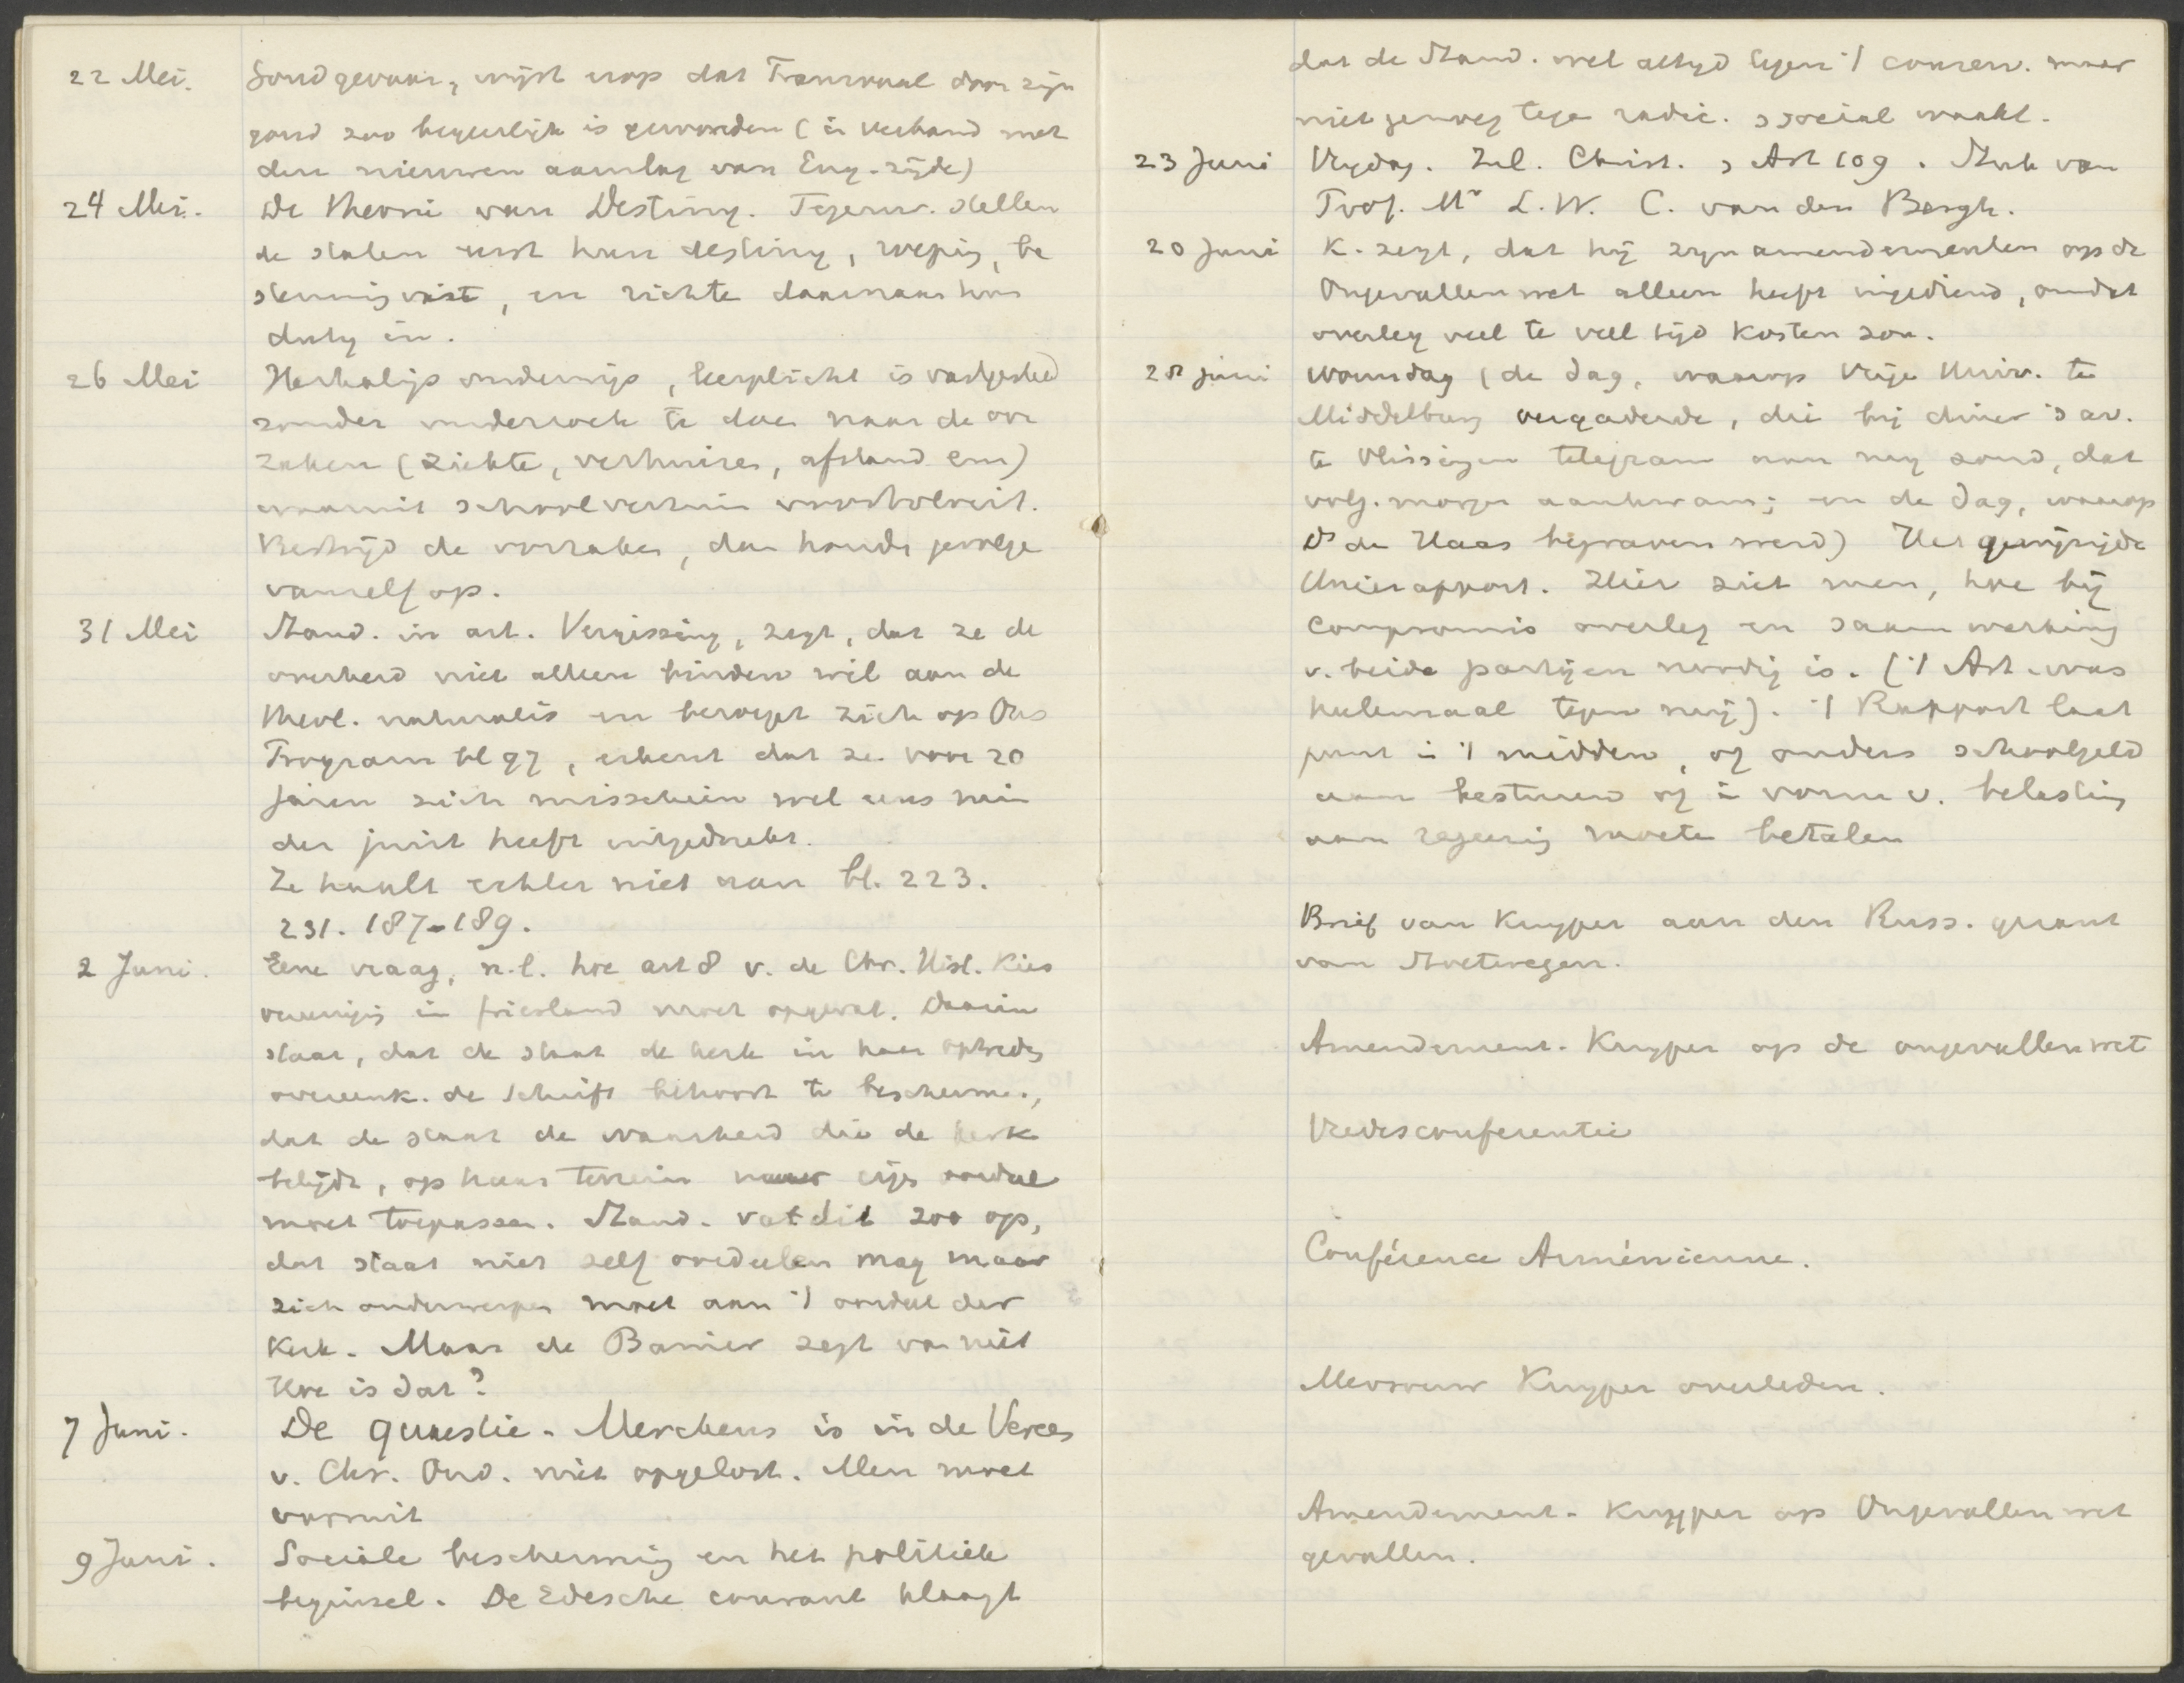 22 Mei. Goudgevaar, wijst erop dat Transvaal door zijn
goud zoo begeerlijk is geworden (in verband met
den nieuwen aanslag van Eng. zijde)
24 Mei. De theorie van Destiny. Tegenw. stellen
de staten eerst hun destiny, roeping, be
stemming vast, en richten daarnaar hun
duty in.
26 Mei Herhalings onderwijs, leerplicht is vastgesteld
zonder onderzoek te doen naar de oor
zaken (ziekte, verhuizen, afstand enz)
waaruit schoolverzuim voortvloeit.
Bestrijd de oorzaken, dan houdt gevolgen
vanzelf op.
31 Mei Stand. in art. Vergissing, zegt, dat ze de
overheid niet alleen binden wil aan de
theol. naturalis en beroept zich op Ons
Program bl 97, erkent dat ze voor 20
jaren zich misschien wel eens min
der juist heeft uitgedrukt.
Ze haalt echter niet aan bl. 223.
231. 187-189.
2 Juni. Eene vraag, n.l. hoe art 8 v. de Chr. Hist. Kies
vereenigig in Friesland moet opgevat. Daarin
staat, dat de staat de kerk in haar optreden
overeenk. de Schrift behoort te beschermen,
dat de staat de waarheid die de kerk
belijdt, op haar terrein naar eigen oordeel
moet toepassen. Stand. vat dit zoo op,
dat staat niet zelf oordeelen mag maar
zich onderwerpen moet aan 't oordeel der
Kerk. Maar de Banier zegt van niet
Hoe is dat?
7 Juni. De quaestie-Merckens is in de Vereen
v. Chr. Ond. niet opgelost. Men moet
vooruit
9 Juni. Sociale bescherming en het politiek
beginsel. De Edesche courant klaagt
dat de Stand. wel altijd tegen 't conserv. maar
niet genoeg tegen radic. & sociaal waakt.
23 Juni Vrijdag. Zul. Christ. , Art 109. Stuk van
Prof. Mr L. W. C. van den Bergh.
20 Juni K. zegt, dat hij zijn amendementen op de
Ongevallenwet alleen heeft ingediend, omdat
overleg veel te veel tijd kosten zou.
28 juni Woensdag (de dag, waarop Vrije Univ. te
Middelburg vergaderde, die bij diner 's av.
te Vlissingen telegram aan mij zond, dat
volg. morgen aankwam; en de dag, waarop
Ds de Haas begraven werd) Het gewijzigde
Unierapport. Hier ziet men, hoe bij
Compromis overleg en saamwerking
v. beide partijen noodig is. ('t Art. was
helemaal tegen mij). 't Rapport laat
juist in 't midden, of ouders schoolgeld
aan bestuur of in vorm v. belasting
aan regeering moeten betalen
Brief van Kuyper aan den Russ. gezant
van Soetwegen.
Amendement-Kuyper op de ongevallenwet
Vredesconferentie
Conférence Arménienne.
Mevrouw Kuyper overleden.
Amendement-Kuyper op Ongevallenwet
gevallen.